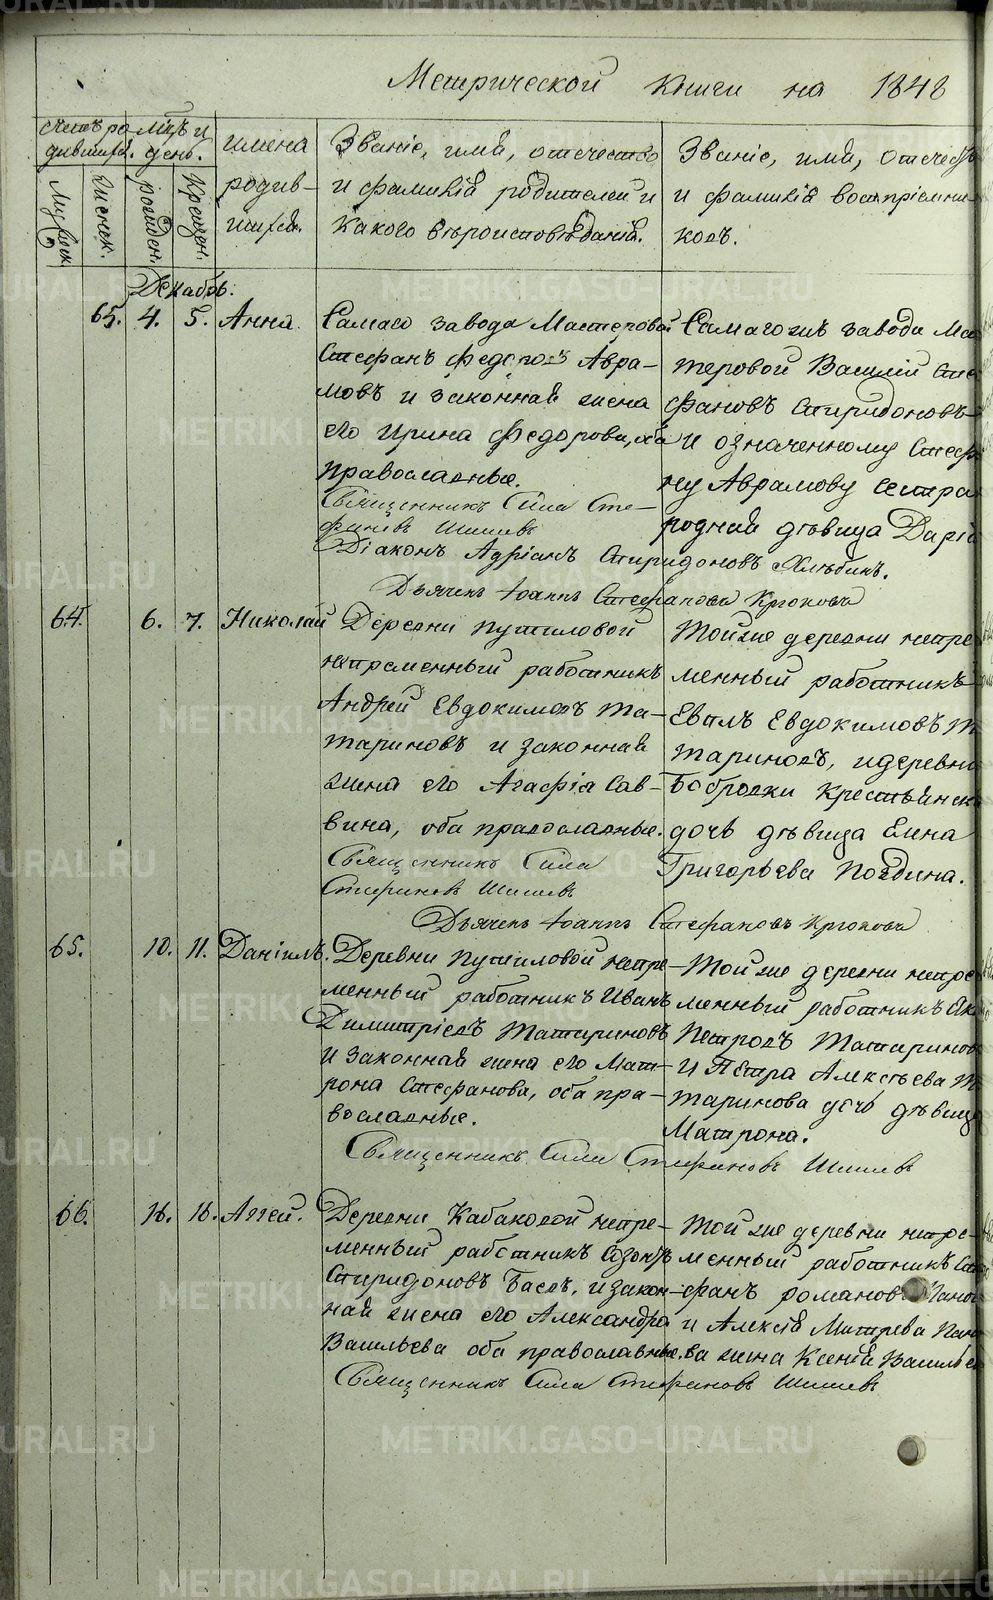 Метрической книги на 1848
счетъ родившихся.
мѣц. и день.
Мужеск.
Женск.
рожден.
крещен.
имена родившихся.
Званіе, имя, отечество и фамилія родителей и какого вѣроисповѣданія.
Званіе, имя, отечеств и фамилія воспріемниковъ.
Декабрь.
65. 4. 5. Анна.
Самаго завода Мастеровой
Стефанъ Федоровъ Авра-
мовъ и законная жена
его Ирина Федорова, оба
православные.
Священникъ Сила Сте-
фановъ Шишевъ
Діаконъ Адріанъ Спиридоновъ Хлѣбинъ.
Дьячекъ Іоаннъ Стефановъ Крюковъ
Самаго жъ завода Мас
теровой Василій Сте
фановъ Спиридоновъ
и означенному Стефа
ну Аврамову сестра
родная дѣвица Дарія
64. 6. 7. Николай
Деревни Путиловой
непременный работникъ
Андрей Евдокимовъ Та-
тариновъ и законная
жена его Агафія Сав-
вина, оба православные.
Священникъ Сила
Стефановъ Шишевъ
Дьячекъ Іоаннъ Стефановъ Крюковъ
Той же деревни непре
менный работникъ
Евдокимовъ Та
тариновъ, и деревни
Бобровки крестьянск
дочь дѣвица Елена
Григорьева
65. 10. 11. Даніилъ.
Деревни Путиловой непре-
менный работникъ Иванъ
Димитріевъ Татариновъ
и законная жена его Мат-
рона Стефанова, оба пра-
вославные.
Священникъ Сила Стефановъ Шишевъ
Той же деревни непре
менный работникъ
Петровъ Татаринов
и Петра Алексѣева Та
таринова дочь дѣвица
Матрона.
66. 16. 16. Аггей.
Деревни Кабаковой непре-
менный работникъ Созонтъ
Спиридоновъ Басъ, и закон-
ная жена его Александра
Васильева оба православные.
Священникъ Сила Стефановъ Шишевъ
Той же деревни непре-
менный работникъ Сте
фанъ Романовъ Пано
и Алексія
ва жена Ксенія Василье
METRIKI.GASO-URAL.RU